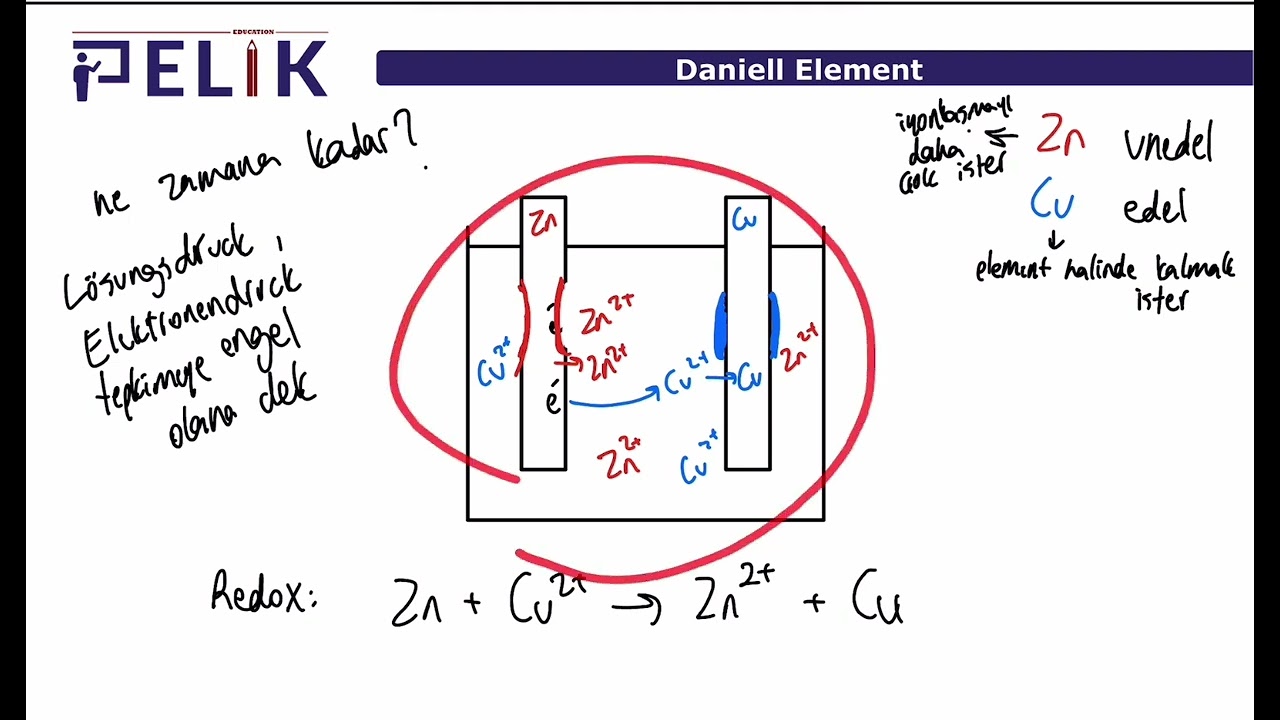 EDUCATION
PELIK
Daniell Element
ne zamana kadar?
Lösungsdruck,
Elektronendruck
tepkimeye engel
olana dek
iyonlaşmayı
daha
çok ister
← Zn unedel
Cu edel
↓
element halinde kalmak
ister
Zn
Cu
e⁻ Zn²⁺
Cu²⁺ → Zn²⁺
Cu²⁺ → Cu Zn²⁺
e⁻
Zn²⁺ Cu²⁺
Redox: Zn + Cu²⁺ → Zn²⁺ + Cu